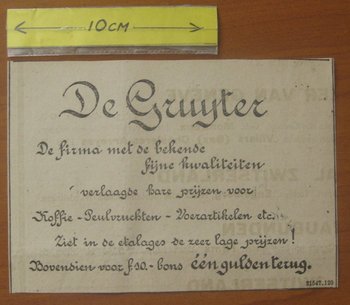 10CM
De Gruyter
De firma met de bekende
fijne kwaliteiten
verlaagde hare prijzen voor
Koffie - Peulvruchten - Voerartikelen etc.
Ziet in de etalages de zeer lage prijzen!
Bovendien voor f.10.- bons één gulden terug.
21547.120